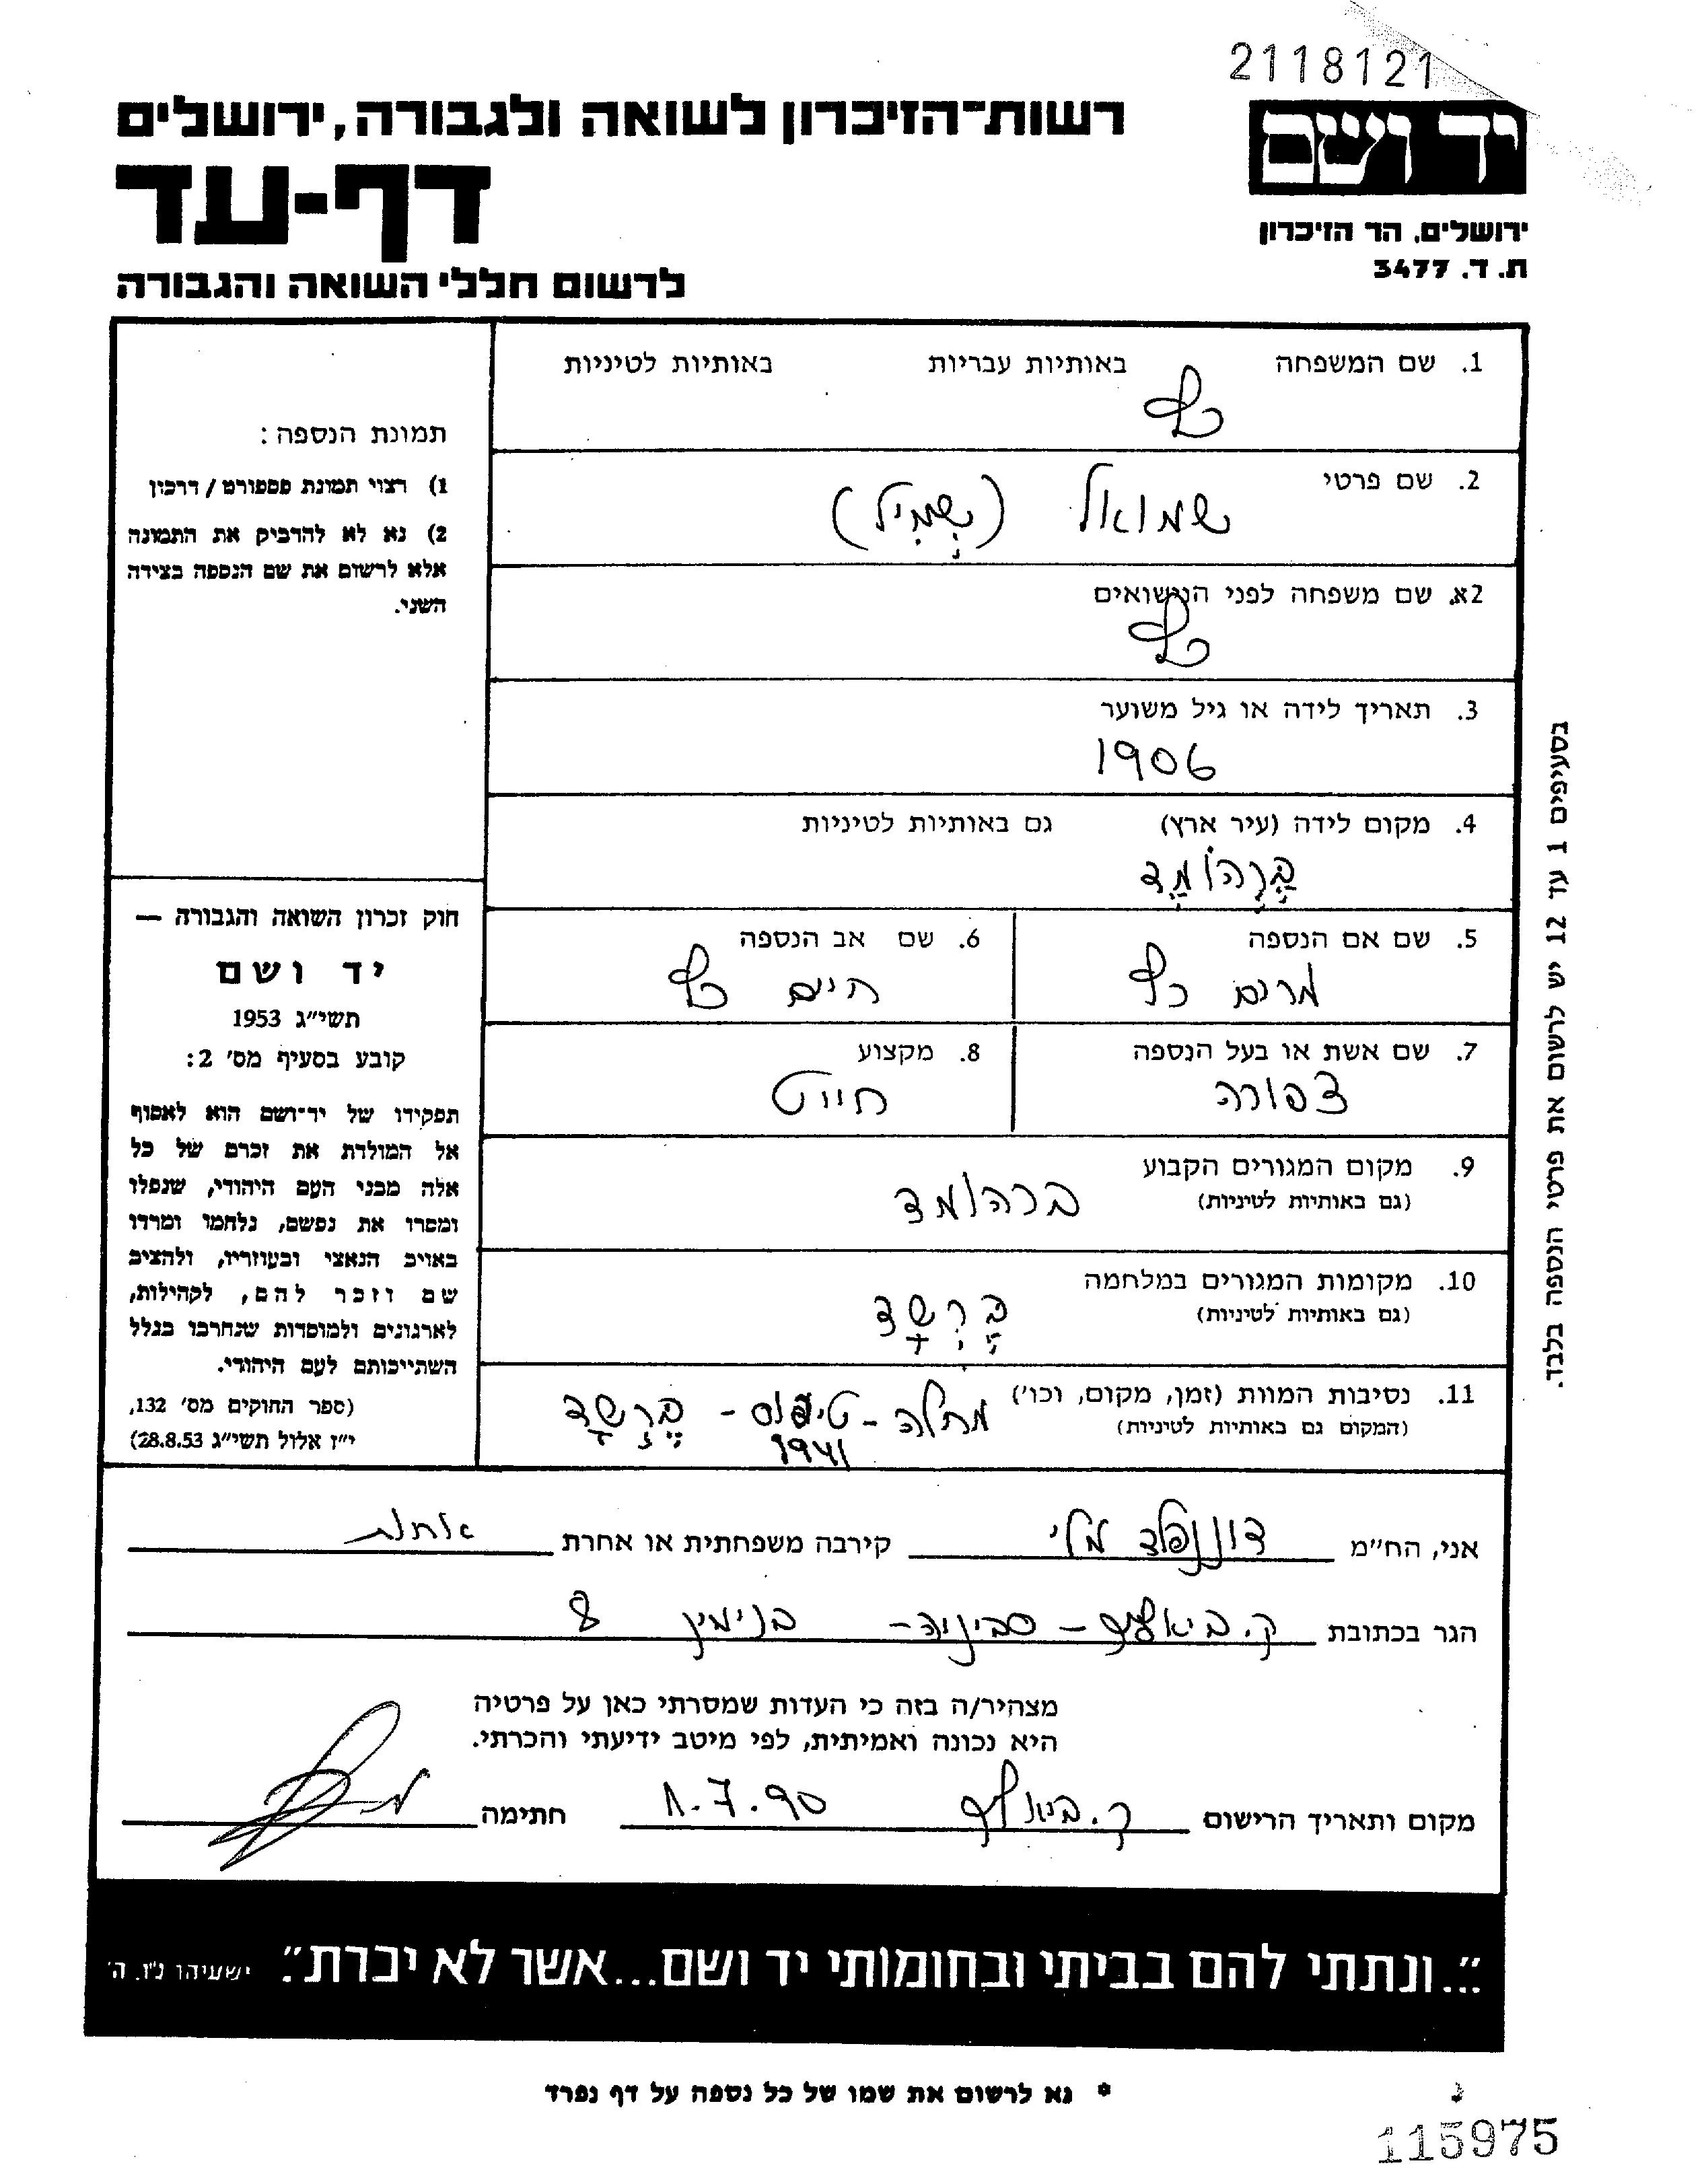 2118121
יד ושם
ירושלים. הר הזיכרון
ת. ד. 3477
רשות־הזיכרון לשואה ולגבורה, ירושלים
דף-עד
לרשום חללי השואה והגבורה
1. שם המשפחה באותיות עבריות באותיות לטיניות
כץ
2. שם פרטי
שמואל (שְׁמִיל)
2א. שם משפחה לפני הנישואים
כץ
3. תאריך לידה או גיל משוער
1906
4. מקום לידה (עיר ארץ) גם באותיות לטיניות
ברהומד
5. שם אם הנספה
מרים כץ
6. שם אב הנספה
חיים כץ
7. שם אשת או בעל הנספה
צפורה
8. מקצוע
חייט
9. מקום המגורים הקבוע
(גם באותיות לטיניות)
ברהומד
10. מקומות המגורים במלחמה
(גם באותיות לטיניות)
ברשד
11. נסיבות המוות (זמן, מקום, וכו')
(המקום גם באותיות לטיניות)
מחלה - טיפוס - ברשד
1941
תמונת הנספה:
1) רצוי תמונת פספורט / דרכון
2) נא לא להדביק את התמונה
אלא לרשום את שם הנספה בצידה
השני.
חוק זכרון השואה והגבורה —
יד ושם
תשי״ג 1953
קובע בסעיף מס׳ 2:
תפקידו של יד־ושם הוא לאסוף
אל המולדת את זכרם של כל
אלה מבני העם היהודי, שנפלו
ומסרו את נפשם, נלחמו ומרדו
באויב הנאצי ובעוזריו, ולהציב
שם וזכר להם, לקהילות,
לארגונים ולמוסדות שנחרבו בגלל
השתייכותם לעם היהודי.
(ספר החוקים מס׳ 132,
י״ז אלול תשי״ג 28.8.53)
בסעיפים 1 עד 12 יש לרשום את פרטי הנספה בלבד.
אני, הח״מ דוננפלד מלי קירבה משפחתית או אחרת
הגר בכתובת ק. ביאליק - סביניה - בנימין 8
מצהיר/ה בזה כי העדות שמסרתי כאן על פרטיה
היא נכונה ואמיתית, לפי מיטב ידיעתי והכרתי.
מקום ותאריך הרישום ק. ביאליק 8.7.90 חתימה
״...ונתתי להם בביתי ובחומותי יד ושם...אשר לא יכרת״. ישעיהו נ״ו. ה׳
* נא לרשום את שמו של כל נספה על דף נפרד
115975